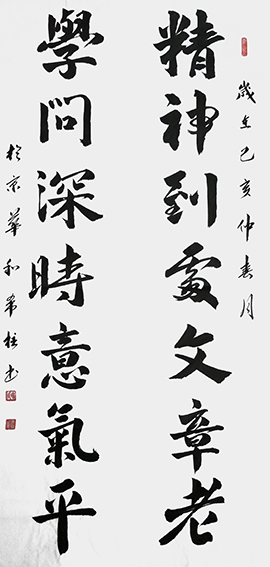 歲在己亥仲春月
精神到處文章老
學問深時意氣平
於京華和希柱书